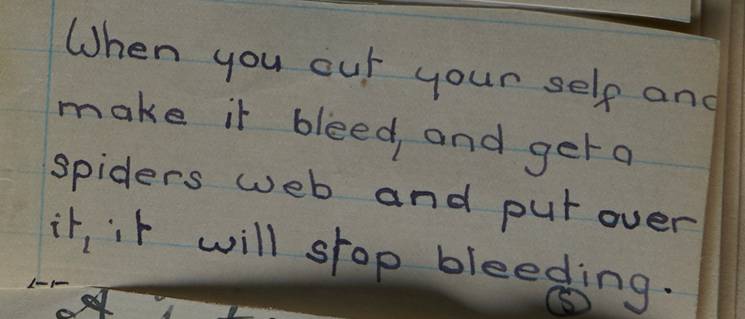 When you cut your self and
make it bleed, and get a
spiders web and put over
it, it will stop bleeding.